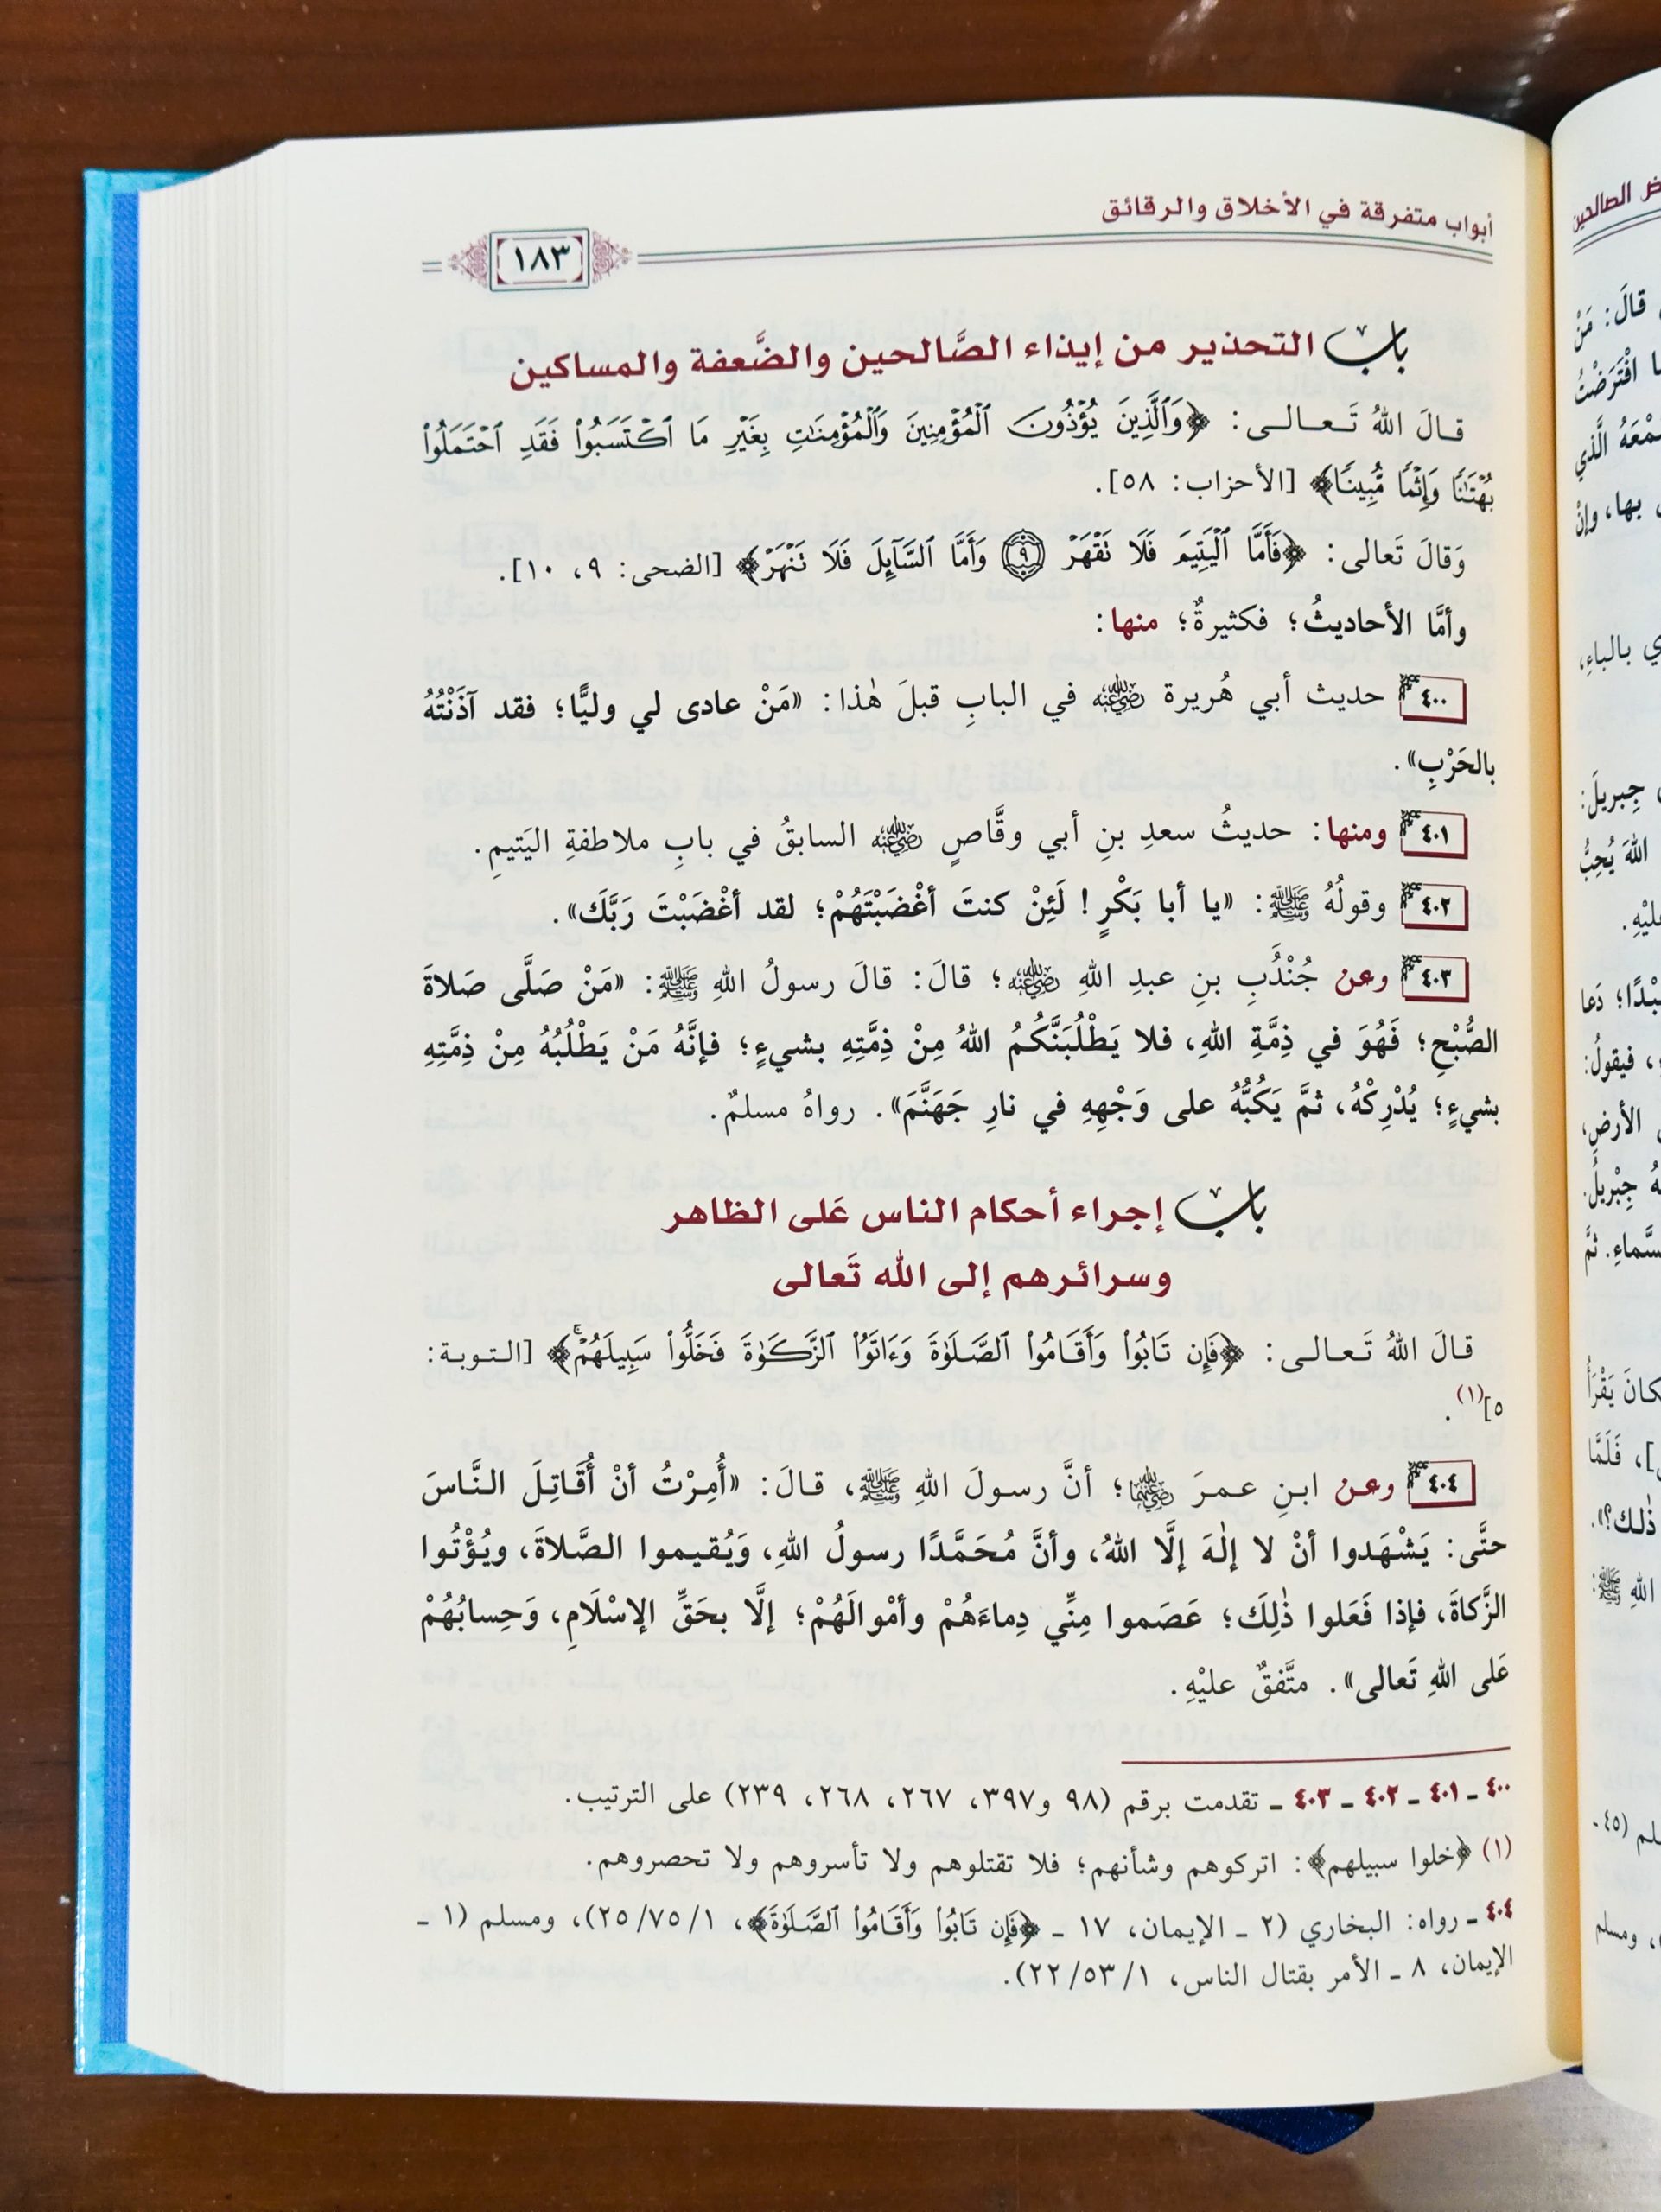 أبواب متفرقة في الأخلاق والرقائق
١٨٣
باب التحذير من إيذاء الصَّالحين والضَّعفة والمساكين
قـالَ اللهُ تَـعـالـى: ﴿وَٱلَّذِينَ يُؤْذُونَ ٱلْمُؤْمِنِينَ وَٱلْمُؤْمِنَٰتِ بِغَيْرِ مَا ٱكْتَسَبُوا۟ فَقَدِ ٱحْتَمَلُوا۟
بُهْتَٰنًا وَإِثْمًا مُّبِينًا﴾ [الأحزاب: ٥٨].
وَقالَ تَعالى: ﴿فَأَمَّا ٱلْيَتِيمَ فَلَا تَقْهَرْ ۝٩ وَأَمَّا ٱلسَّآئِلَ فَلَا تَنْهَرْ﴾ [الضحى: ٩، ١٠].
وأمَّا الأحاديثُ؛ فكثيرةٌ؛ منها:
٤٠٠ حديث أبي هُريرة رضي الله عنه في البابِ قبلَ هٰذا: «مَنْ عادى لي وليًّا؛ فقد آذَنْتُهُ
بالحَرْبِ».
٤٠١ ومنها: حديثُ سعدِ بنِ أبي وقَّاصٍ رضي الله عنه السابقُ في بابِ ملاطفةِ اليَتيمِ.
٤٠٢ وقولُهُ ﷺ: «يا أبا بَكْرٍ! لَئِنْ كنتَ أغْضَبْتَهُمْ؛ لقد أغْضَبْتَ رَبَّكَ».
٤٠٣ وعن جُنْدُبِ بنِ عبدِ اللهِ رضي الله عنه؛ قالَ: قالَ رسولُ اللهِ ﷺ: «مَنْ صَلَّى صَلاةَ
الصُّبْحِ؛ فَهُوَ في ذِمَّةِ اللهِ، فلا يَطْلُبَنَّكُمُ اللهُ مِنْ ذِمَّتِهِ بشيءٍ؛ فإنَّهُ مَنْ يَطْلُبْهُ مِنْ ذِمَّتِهِ
بشيءٍ؛ يُدْرِكْهُ، ثمَّ يَكُبُّهُ على وَجْهِهِ في نارِ جَهَنَّمَ». رواهُ مسلمٌ.
باب إجراء أحكام الناس عَلى الظاهر
وسرائرهم إلى الله تَعالى
قـالَ اللهُ تَـعـالـى: ﴿فَإِن تَابُوا۟ وَأَقَامُوا۟ ٱلصَّلَوٰةَ وَءَاتَوُا۟ ٱلزَّكَوٰةَ فَخَلُّوا۟ سَبِيلَهُمْ﴾ [التوبة:
٥](١).
٤٠٤ وعن ابنِ عمرَ رضي الله عنهما؛ أنَّ رسولَ اللهِ ﷺ، قالَ: «أُمِرْتُ أنْ أُقَاتِلَ النَّاسَ
حتَّى: يَشْهَدوا أنْ لا إلٰهَ إلَّا اللهُ، وأنَّ مُحَمَّدًا رسولُ اللهِ، وَيُقيموا الصَّلاةَ، ويُؤْتُوا
الزَّكاةَ، فإذا فَعَلوا ذٰلِكَ؛ عَصَموا مِنِّي دِماءَهُمْ وأمْوالَهُمْ؛ إلَّا بحَقِّ الإسْلَامِ، وَحِسابُهُمْ
عَلى اللهِ تَعالى». متَّفقٌ عليْهِ.
٤٠٠ ـ ٤٠١ ـ ٤٠٢ ـ ٤٠٣ ـ تقدمت برقم (٩٨ و٣٩٧، ٢٦٧، ٢٦٨، ٢٣٩) على الترتيب.
(١) ﴿خلوا سبيلهم﴾: اتركوهم وشأنهم؛ فلا تقتلوهم ولا تأسروهم ولا تحصروهم.
٤٠٤ ـ رواه: البخاري (٢ ـ الإيمان، ١٧ ـ ﴿فَإِن تَابُوا۟ وَأَقَامُوا۟ ٱلصَّلَوٰةَ﴾، ٢٥/٧٥/١)، ومسلم (١ ـ
الإيمان، ٨ ـ الأمر بقتال الناس، ٢٢/٥٣/١).